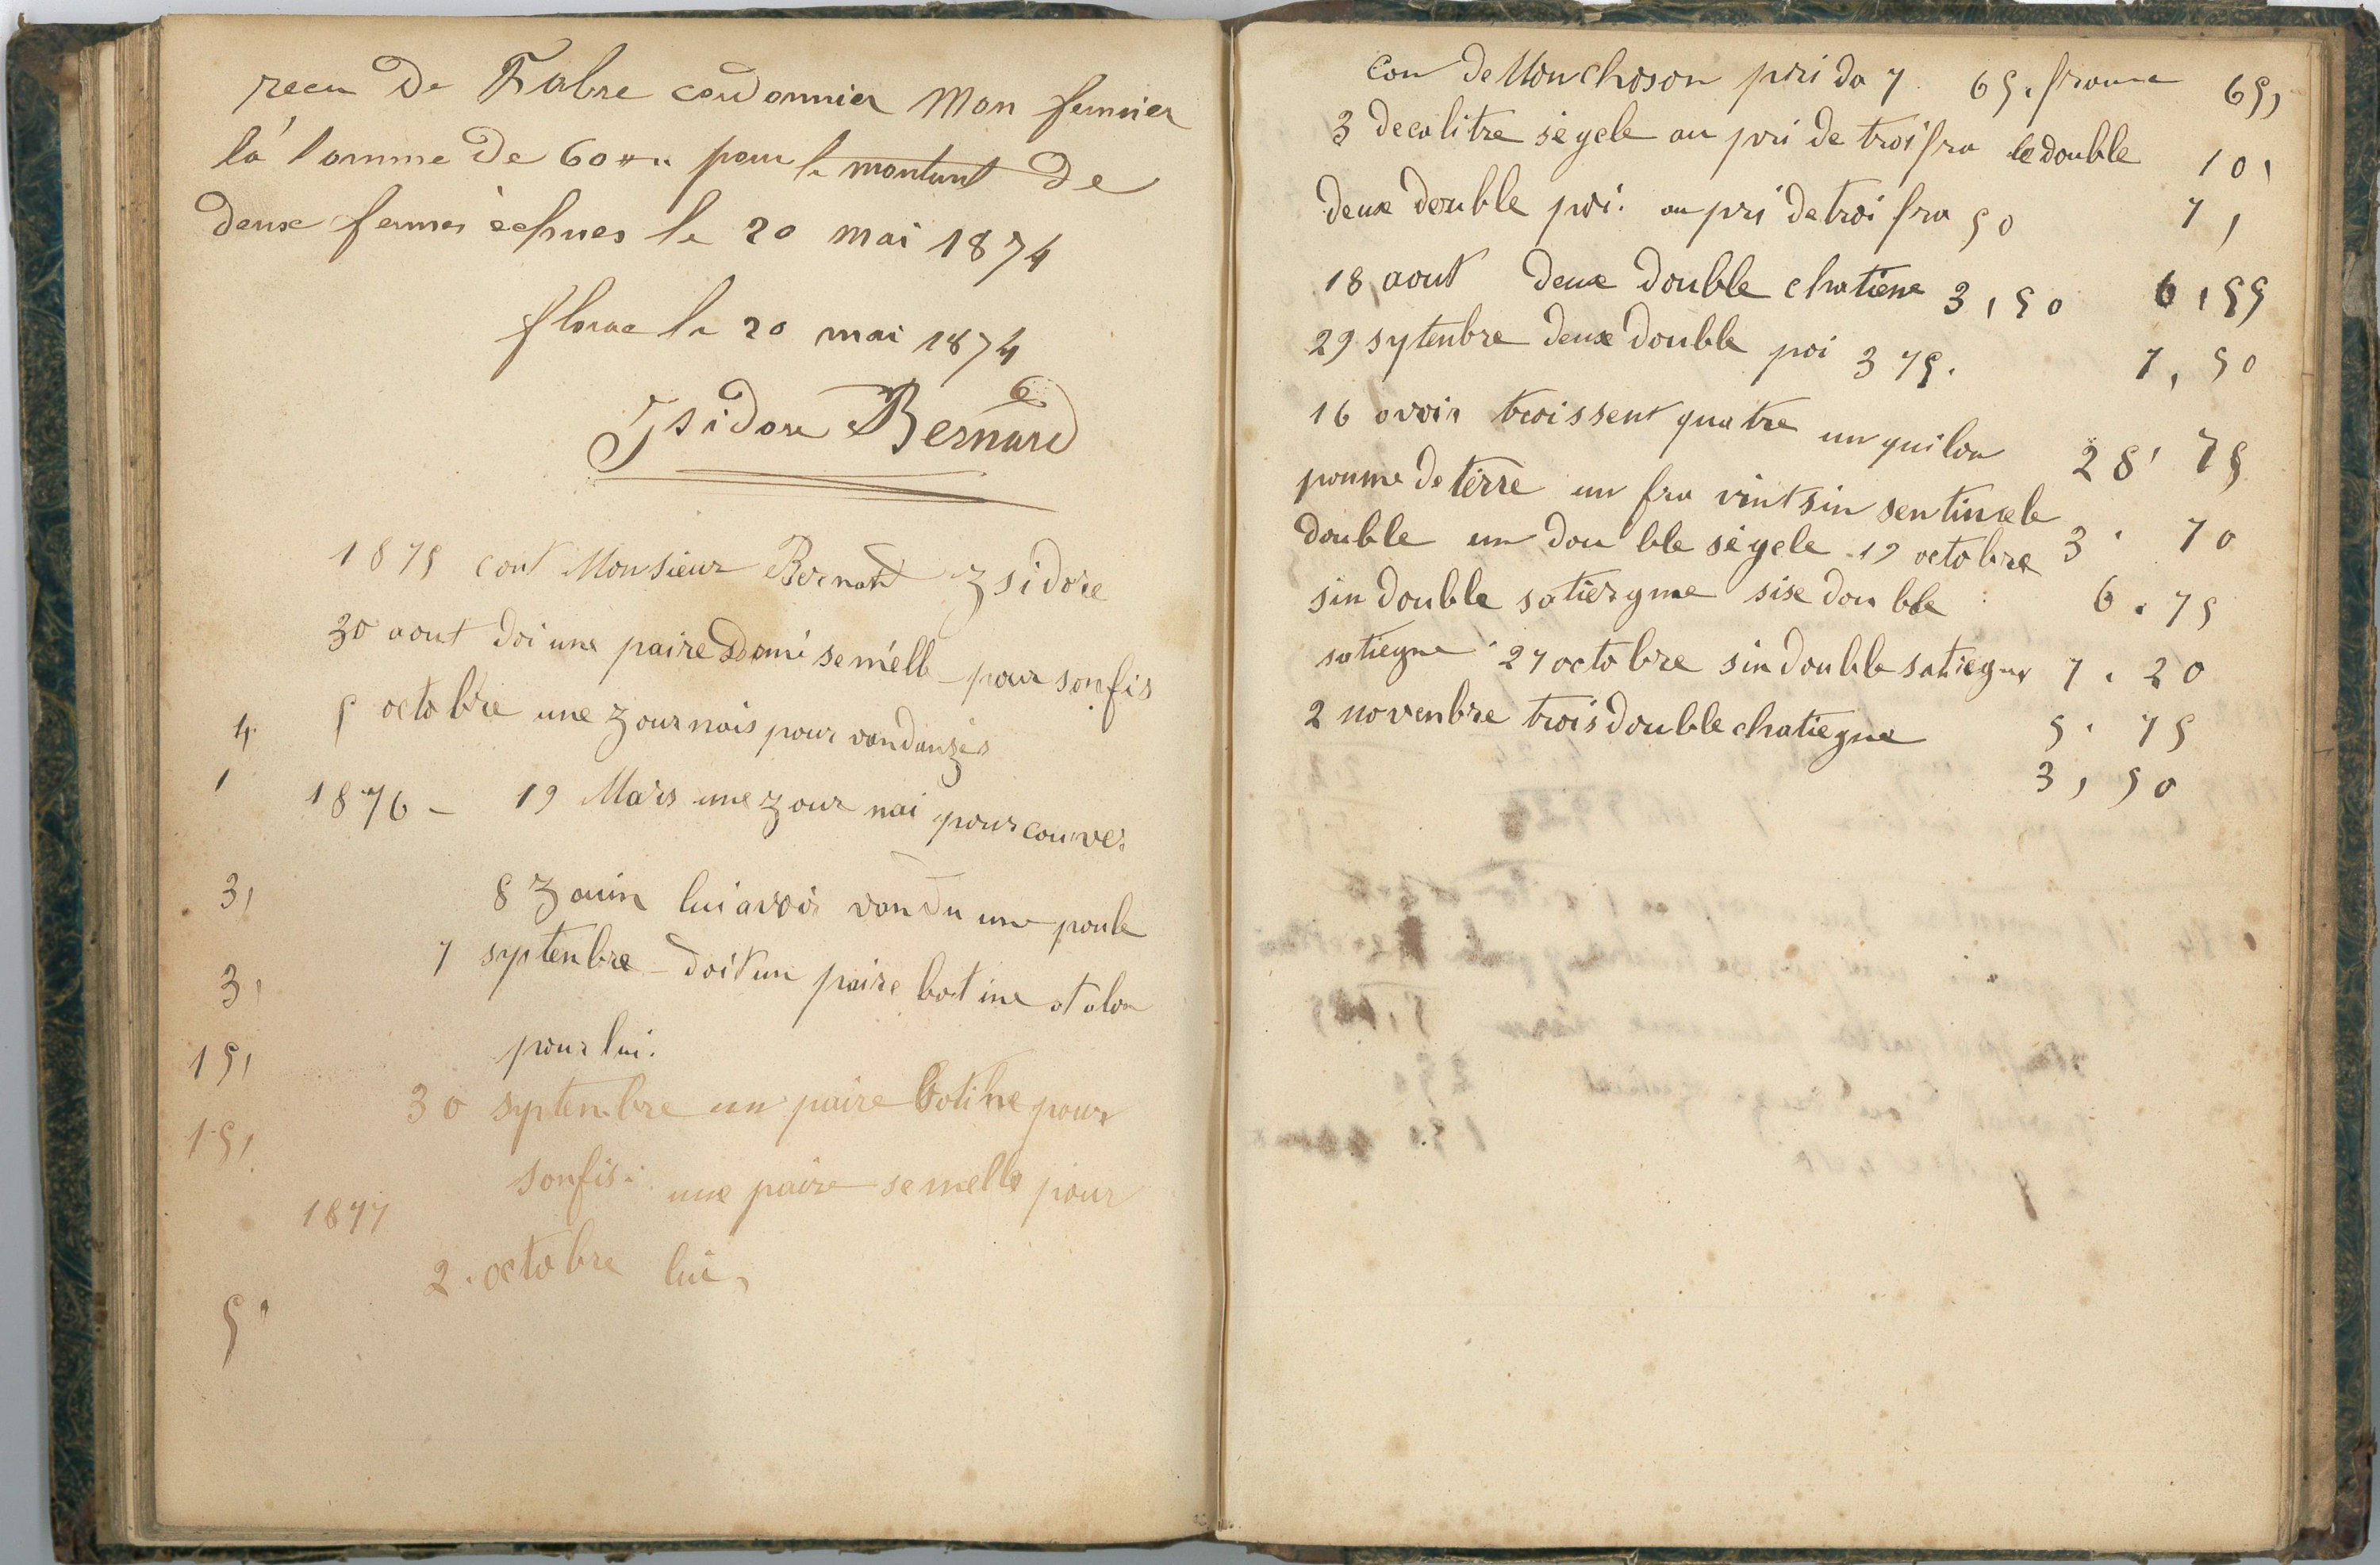 recu De Fabre cordonnier Mon fermier
la somme De 60 pour le montant De
deux fermes èchues le 20 mai 1874
florac le 20 mai 1874
Isidore Bernard
1875 cont Monsieur Bernard Zsidore
30 aout doi une paire Domi semelle pour son fis
5 octobre une zournois pour vandanzer
4
1
1876 - 19 Mars une zour nai pour couver
3, 8 Zouin lui avoir vandu une poule
7 syptenbre - doit un paire botine otalon
3,
pour lui.
15,
30 syptenbre un paire botine pour
15,
sonfis. une paire semelle pour
1877
2. octobre lui,
5
Con de Monchoson pri da 7 65. frome 65,
3 decalitre sègele au pri de troi fra le double 10,
deux double poi. au pri de troi fra 50 7,
18 aout deux double chatiene 3,50 6,55
29 syptenbre deux double poi 3 75. 7,50
16 avoir troissent quatre un quilon 28, 75
poume de terre un fra vint sin sentimele
double un dou ble sègele 19 octobre 3. 70
sin double satiergme sise dou ble 6. 75
satiegne 27 octobre sin double satiegne 7. 20
2 novenbre trois double chatiegne 5. 75
3, 50